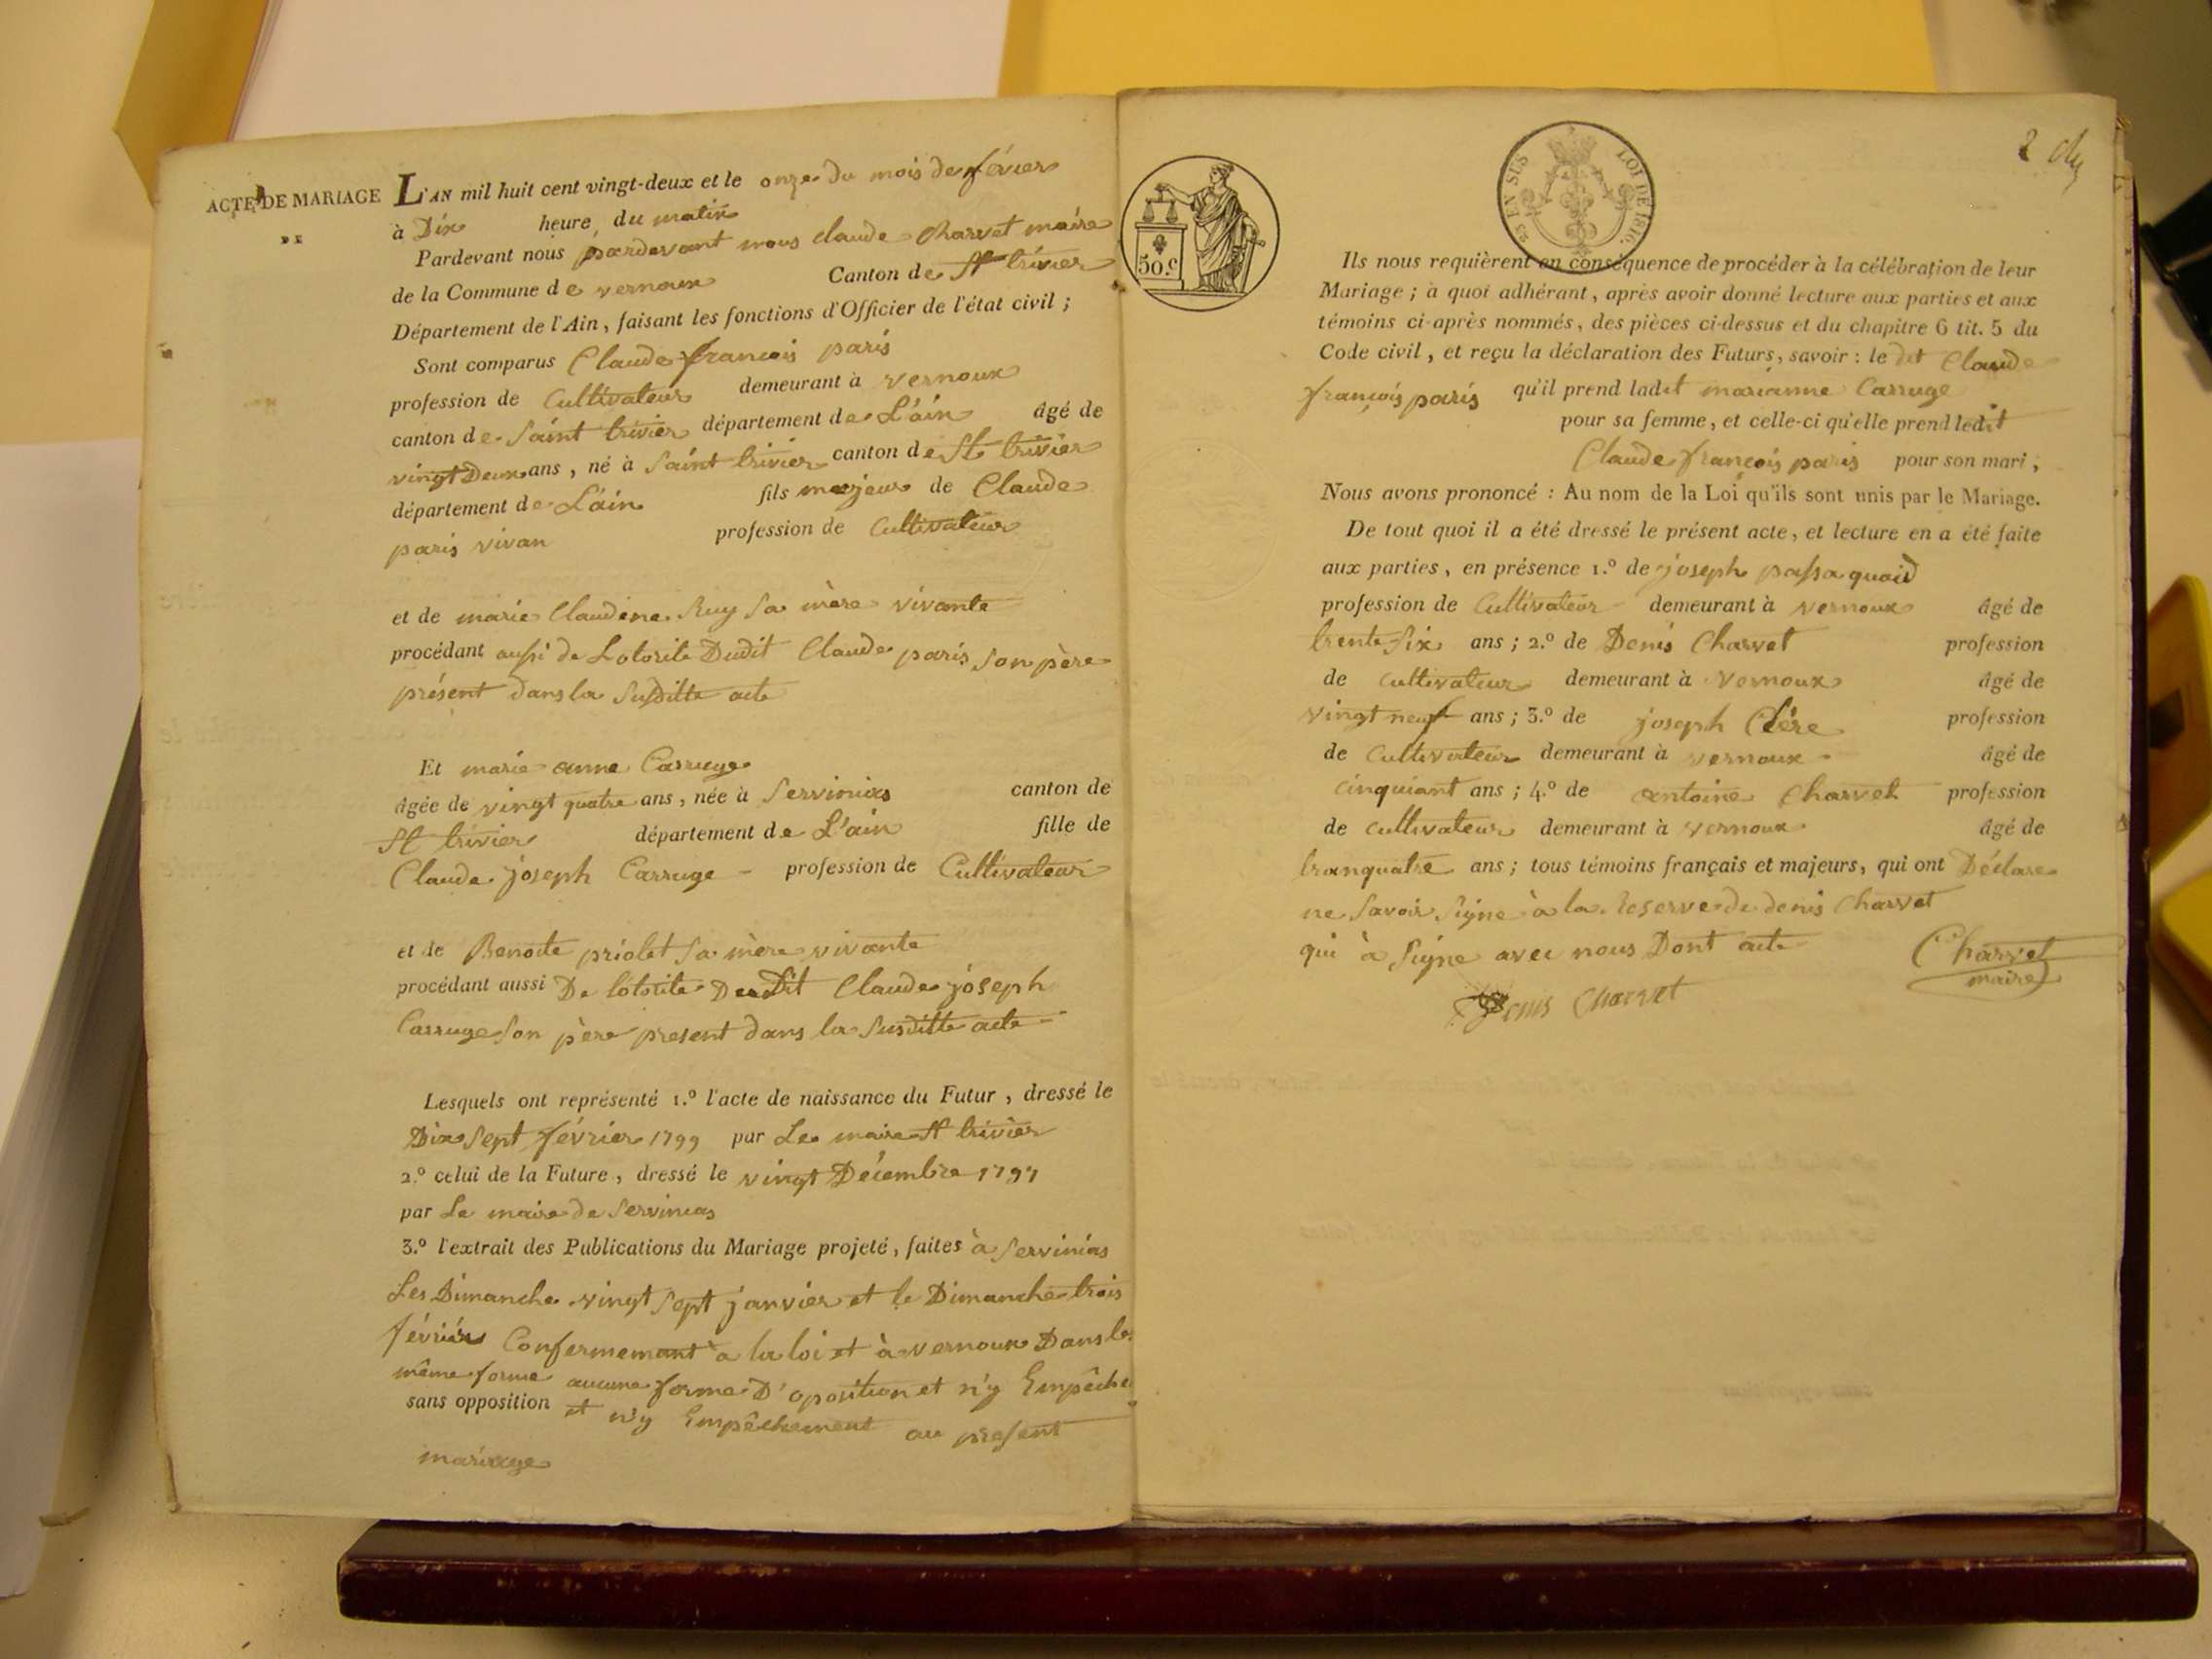 ACTE DE MARIAGE
DE
L'AN mil huit cent vingt-deux et le onze du mois de févier
à Dix heure, du matin
Pardevant nous pardevant nous claude Charvet maire
de la Commune de vernoux Canton de St trivier
Département de l'Ain, faisant les fonctions d'Officier de l'état civil ;
Sont comparus Claude francois paris
profession de Cultivateur demeurant à vernoux
canton de Saint trivier département de L'ain âgé de
vingt Deux ans, né à Saint trivier canton de St trivier
département de L'ain fils majeur de Claude
paris vivan profession de Cultivateur
et de marie Claudine Ruy sa mère vivante
procédant aussi de Lotorite Dudit Claude paris son père
présent dans la susditte acte
Et marie anne Carruge
âgée de vingt quatre ans, née à Servinias canton de
St trivier département de L'ain fille de
Claude joseph Carruge - profession de Cultivateur
et de Benoite priolet sa mère vivante
procédant aussi De lotorite Dudit Claude joseph
Carruge son père present dans la susditte acte
Lesquels ont représenté 1.º l'acte de naissance du Futur, dressé le
Dix sept février 1799 par Le maire St trivier
2.º celui de la Future, dressé le vingt Décembre 1797
par Le maire de Servinias
3.º l'extrait des Publications du Mariage projeté, faites à Servinias
Les Dimanche vingt sept janvier et le Dimanche trois
février Confermemant à la loi et à vernoux Dans la
même forme aucune forme D'oposition et n'y Empêche
sans opposition et n'y Empêchement au present
mariage
50.c
25 EN SUS LOI DE 1816.
2
Ils nous requièrent en conséquence de procéder à la célébration de leur
Mariage ; à quoi adhérant, après avoir donné lecture aux parties et aux
témoins ci-après nommés, des pièces ci-dessus et du chapitre 6 tit. 5 du
Code civil, et reçu la déclaration des Futurs, savoir : le dit Claude
françois paris qu'il prend ladit marianne Carruge
pour sa femme, et celle-ci qu'elle prend ledit
Claude françois paris pour son mari,
Nous avons prononcé : Au nom de la Loi qu'ils sont unis par le Mariage.
De tout quoi il a été dressé le présent acte, et lecture en a été faite
aux parties, en présence 1.º de joseph passaquaid
profession de Cultivateur demeurant à vernoux âgé de
trente six ans ; 2.º de Denis Charvet profession
de cultivateur demeurant à vernoux âgé de
vingt neuf ans ; 3.º de joseph Clére profession
de Cultivateur demeurant à vernoux âgé de
cinquiant ans ; 4.º de antoine Charvet profession
de cultivateur demeurant à vernoux âgé de
tranquatre ans ; tous témoins français et majeurs, qui ont Déclare
ne savoir signe à la reserve de denis Charvet
qui à signe avec nous Dont acte
Charvet
maire
Denis Charvet